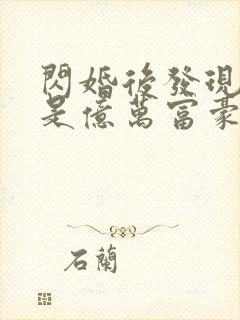 閃婚後發現
是億萬富豪
石蘭